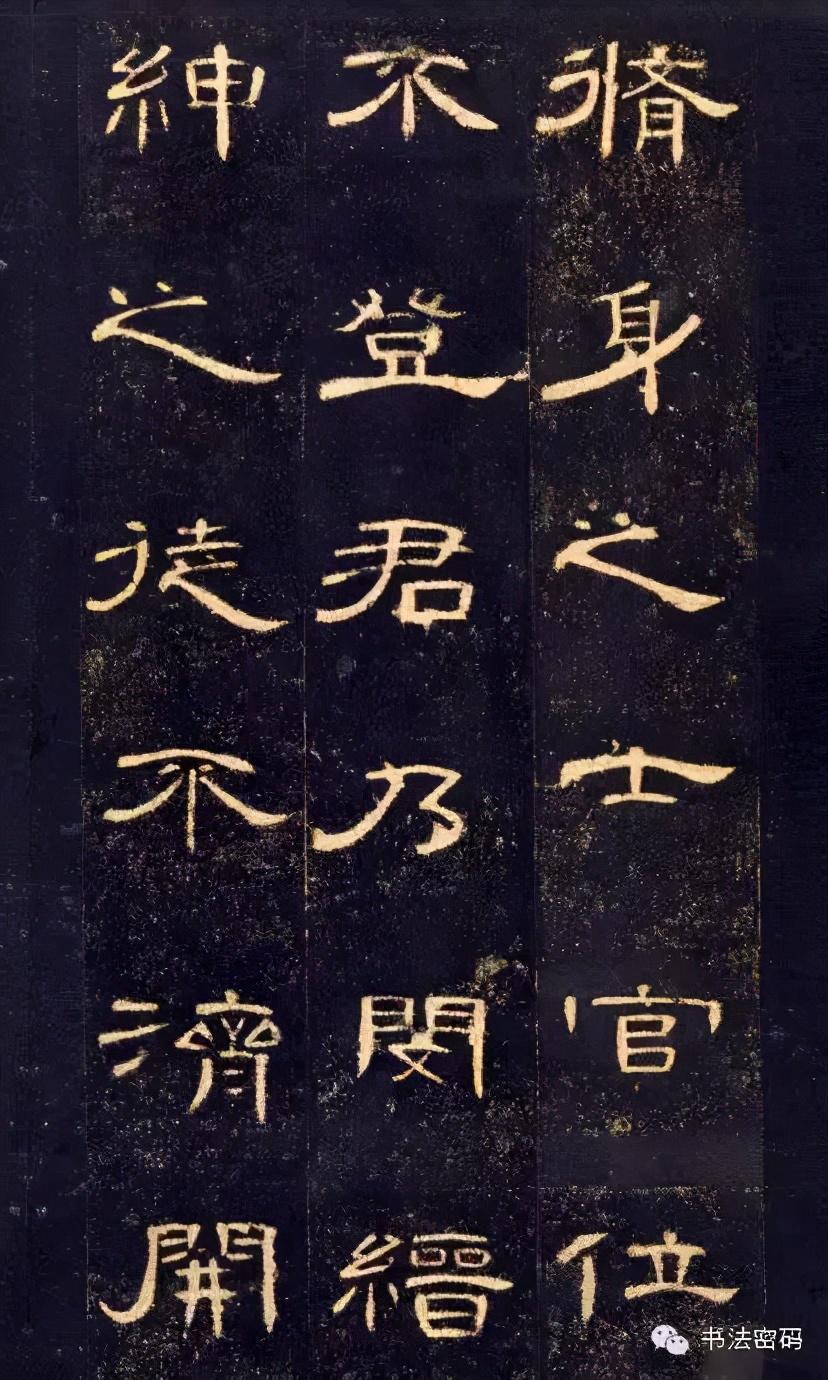 脩身之士官位
不登君乃閔縉
紳之徒不濟開
书法密码